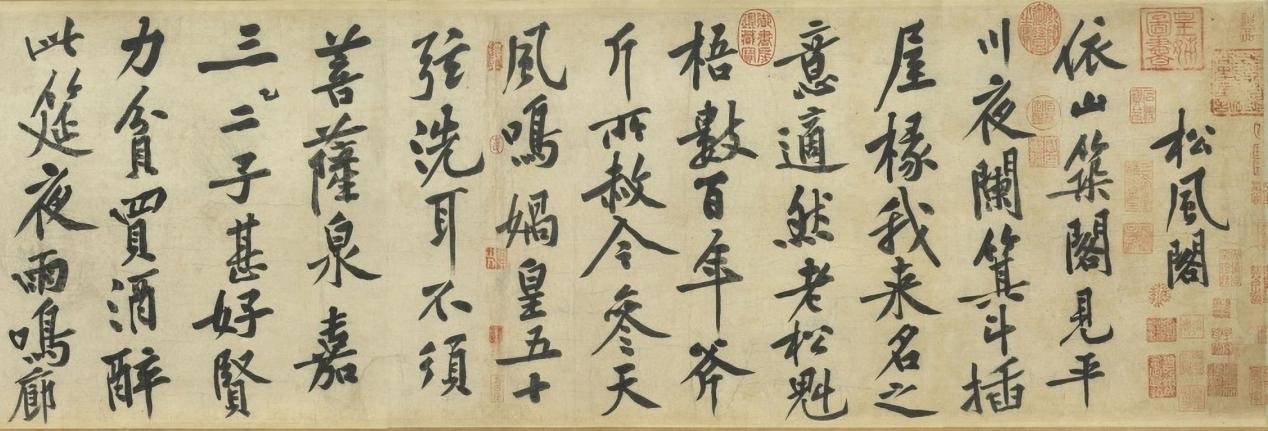 皇姊圖書
松風閣
依山築閣見平
川夜闌箕斗插
屋椽我来名之
意適然老松魁
御書房鑑藏寶
梧數百年斧
斤所赦今參天
風鳴媧皇五十
弦洗耳不須
菩薩泉嘉
三二子甚好賢
力貧買酒醉
此筵夜雨鳴廊